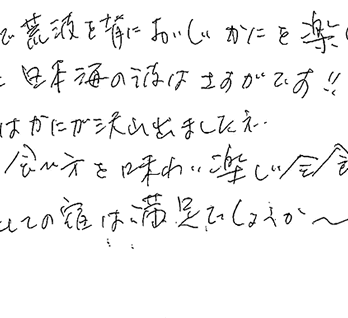 で荒波を背においしいかにを楽
日本海の波はさすがです!!
はかにが沢山出ましたネ
食べ方を味わい楽しい会食
しての宿は満足でしょうか〜